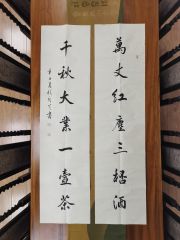 萬丈紅塵三桮酒
千秋大業一壺茶